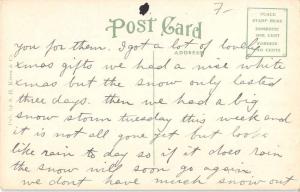 7-
Post Card
ADDRESS
PLACE
STAMP HERE
DOMESTIC
ONE CENT
FOREIGN
TWO CENTS
you for them. I got a lot of lovely
xmas gifts we had a nice white
xmas but the snow only lasted
three days. then we had a big
snow storm tuesday this week and
it is not all gone yet but looks
like rain to day so if it does rain
the snow will soon go again
we dont have much snow out